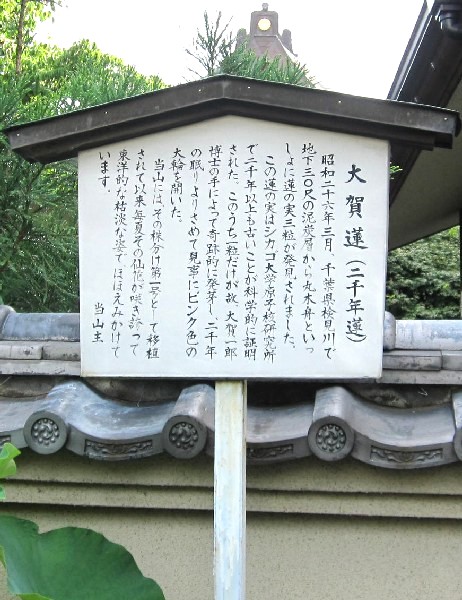 大賀蓮（二千年蓮）
昭和二十六年三月、千葉県検見川で
地下三〇尺の泥炭層から丸木舟といっ
しょに蓮の実三粒が発見されました。
この蓮の実はシカゴ大学原子核研究所
で二千年以上も古いことが科学的に証明
された。このうち一粒だけが故、大賀一郎
博士の手によって奇跡的に発芽し、二千年
の眠りよりさめて見事にピンク色の
大輪を開いた。
当山には、その株分け第二号として移植
されて以来毎夏その仙姿が咲き誇って
東洋的な枯淡な姿で、ほほえみかけて
います。
当山主